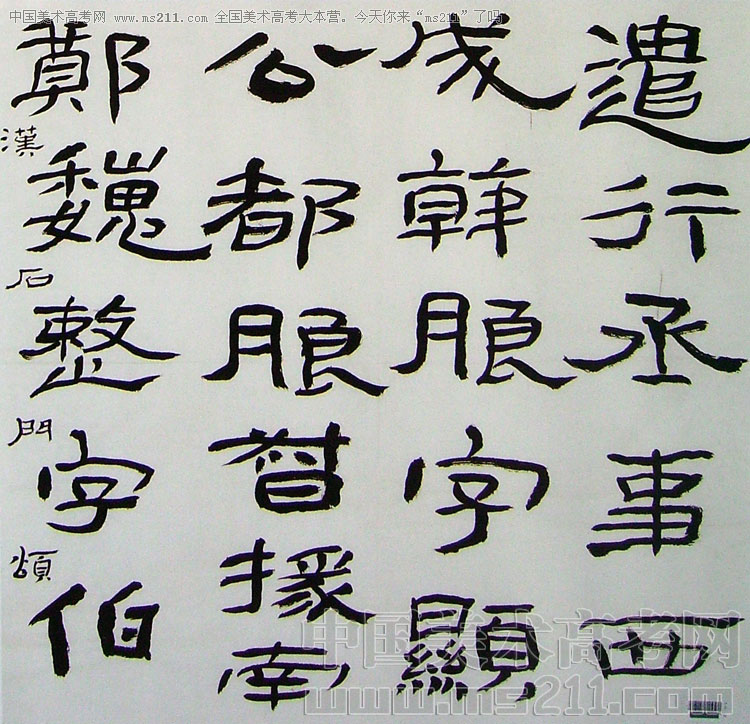 中国美术高考网 www.ms211.com 全国美术高考大本营。今天你来“ms211”了吗
遣行丞事西
成韓朖字顯
公都朖督掾南
鄭魏整字伯
漢石門頌
中国美术高考网
www.ms211.com